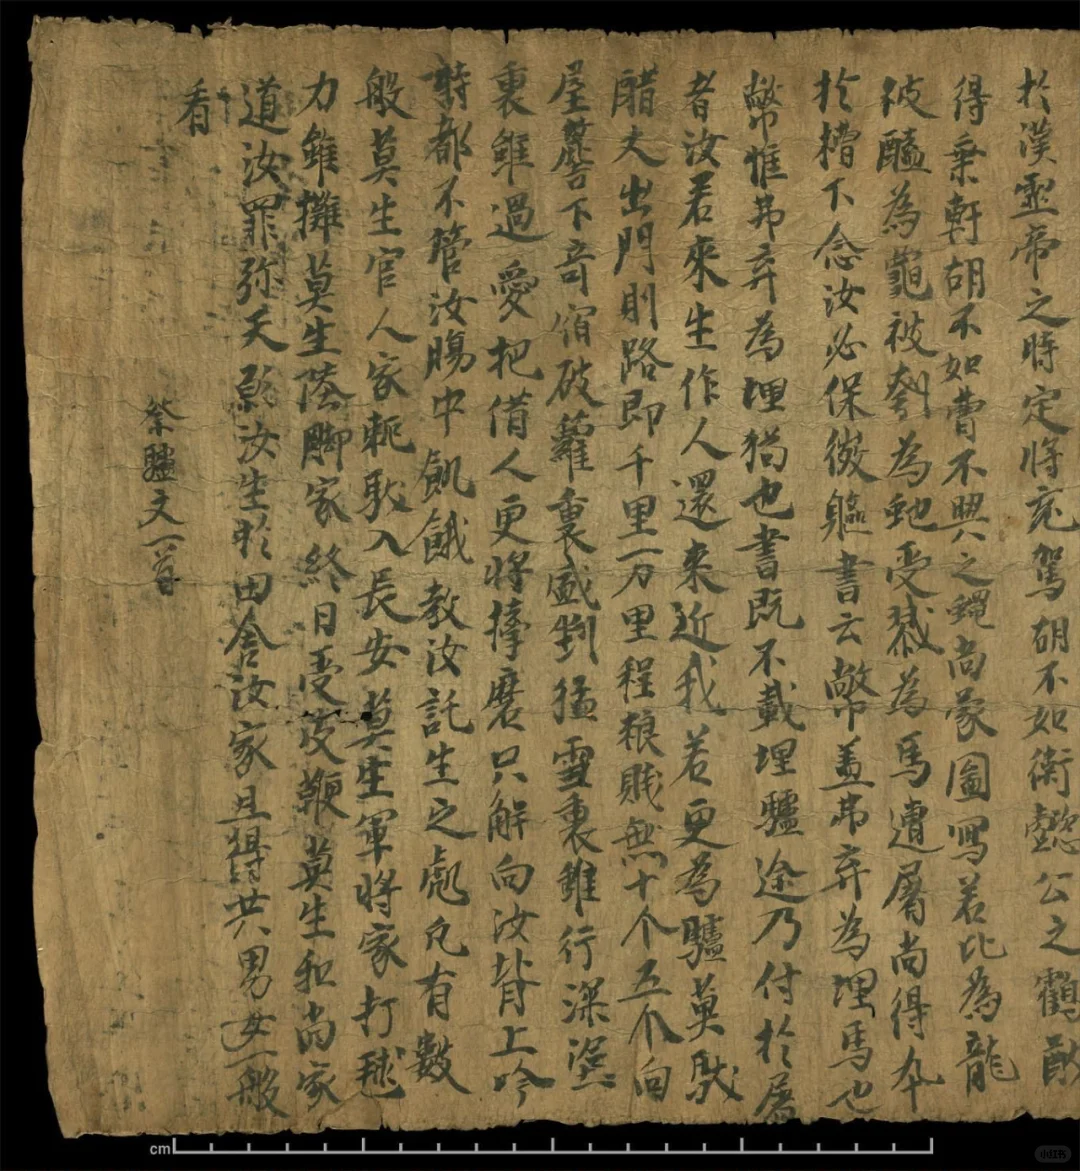 於漢靈帝之時定將充駕胡不如衛懿公之鶴猷
得乘軒胡不如曹不興之蠅尚蒙圖寫若比為龍
彼醢為龜被刳為虵受戮為馬遭屠尚得夲
於槽下念汝必保微軀書云弊盖弗弃為埋馬也
弊惟弗弃為埋狗也書既不載埋驢途乃付於屠
者汝若來生作人還來近我若更為驢莫馱
醋大出門則路即千里一万里程粮賤無十个五个向
屋簷下寄宿破籬裏盛剉猛雪裏雖行深溪
裏雖過愛把借人更將磨只解向汝背上吟
詩都不管汝腸中飢餓教汝託生之處凡有數
般莫生官人家軛馱入長安莫生軍將家打毬
力雖攤莫生陵脚家終日受皮鞭莫生和尚家
道汝罪弥天願汝生於田舍汝家且得共男女一般
看
祭驢文一首
cm
小红书